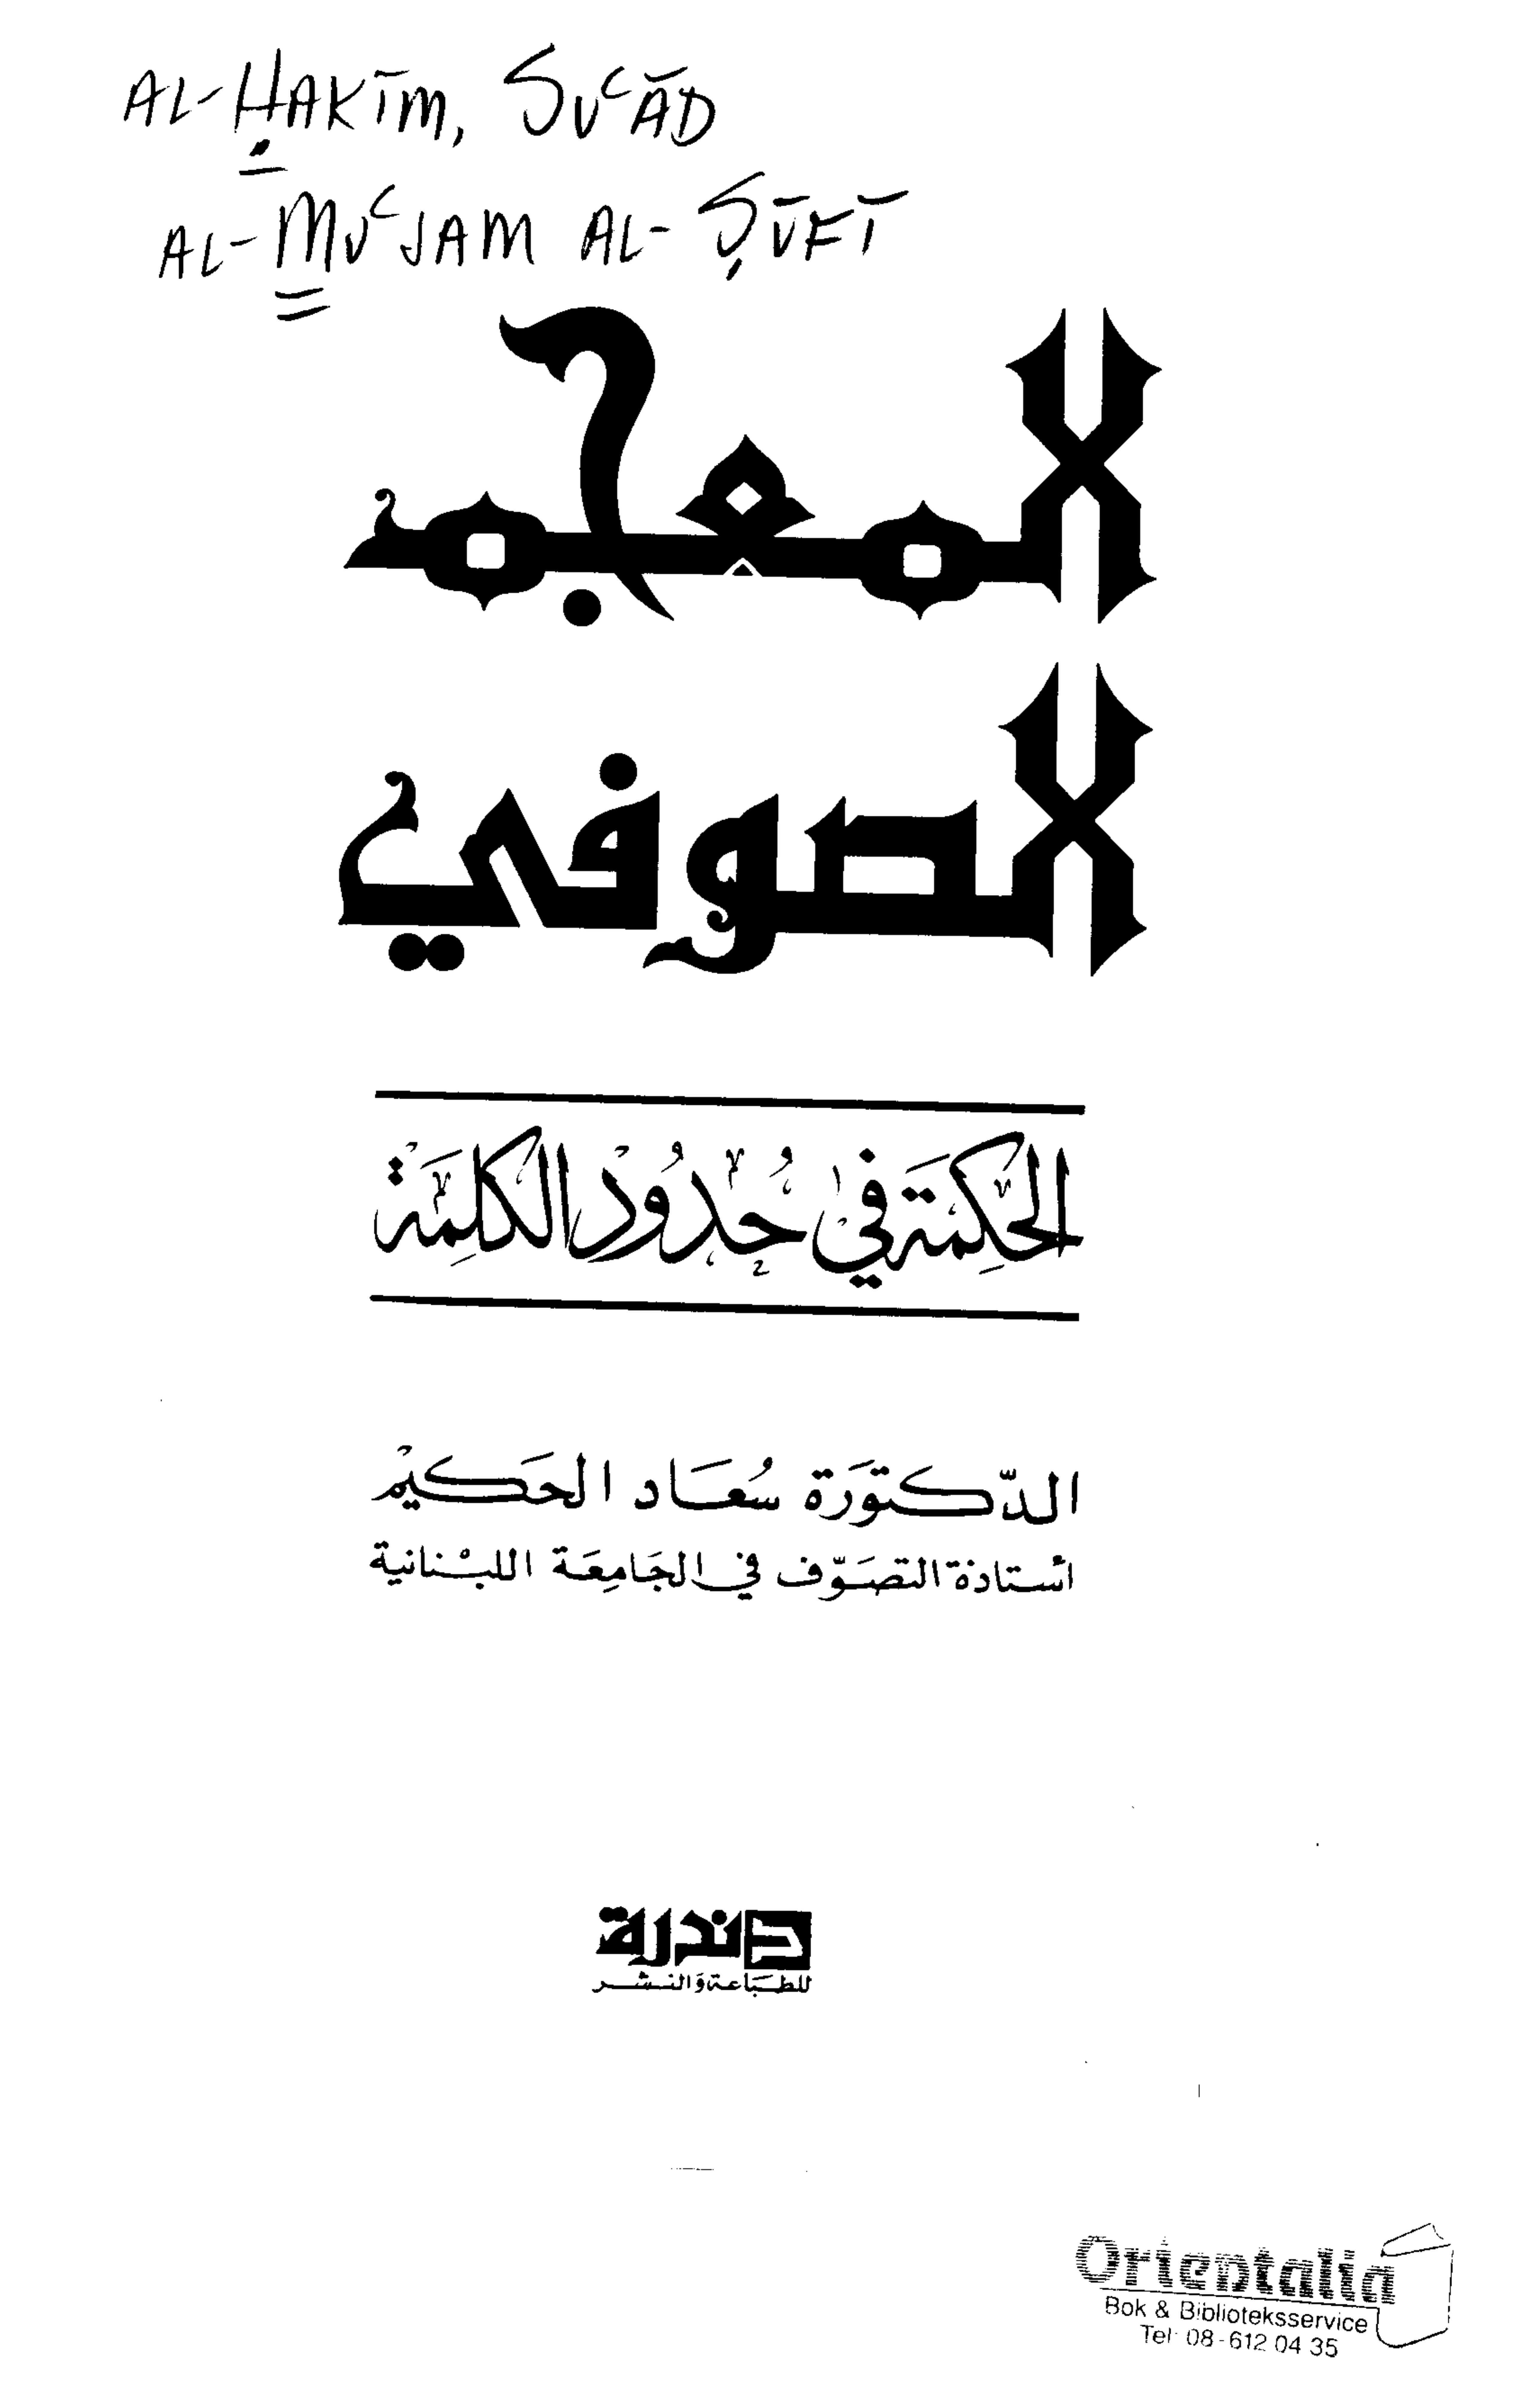 AL-ḤAKĪM, SUʿĀD
AL-MUʿJAM AL-ṢŪFĪ
المعجم
الصوفي
الحِكمَة في حُدُودْ الكلِمَة
الدّكتورَة سُعَاد الحَكيمْ
أستاذة التصَوّف في الجَامِعَة اللبْنانية
دندرة
للطبَاعة وَالنشر
Orientalia
Bok & Biblioteksservice
Tel 08-612 04 35